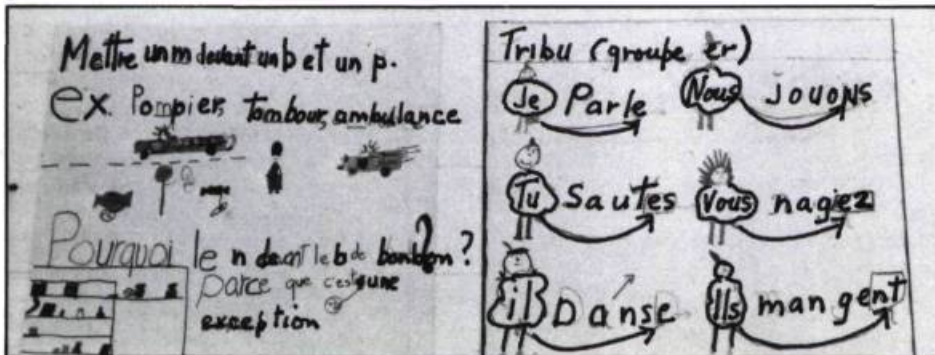 Mettre un m devant un b et un p.
ex. Pompier, tambour, ambulance
Pourquoi le n devant le b de bonbon ?
parce que c'est une
exception
Tribu (groupe er)
Je Parle
Nous Jouons
Tu Sautes
Vous nagiez
il Danse
Ils mangent